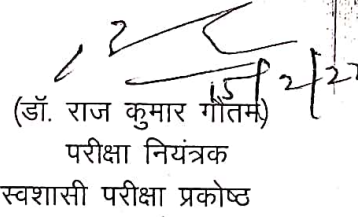 15/2/22
(डॉ. राज कुमार गौतम)
परीक्षा नियंत्रक
स्वशासी परीक्षा प्रकोष्ठ